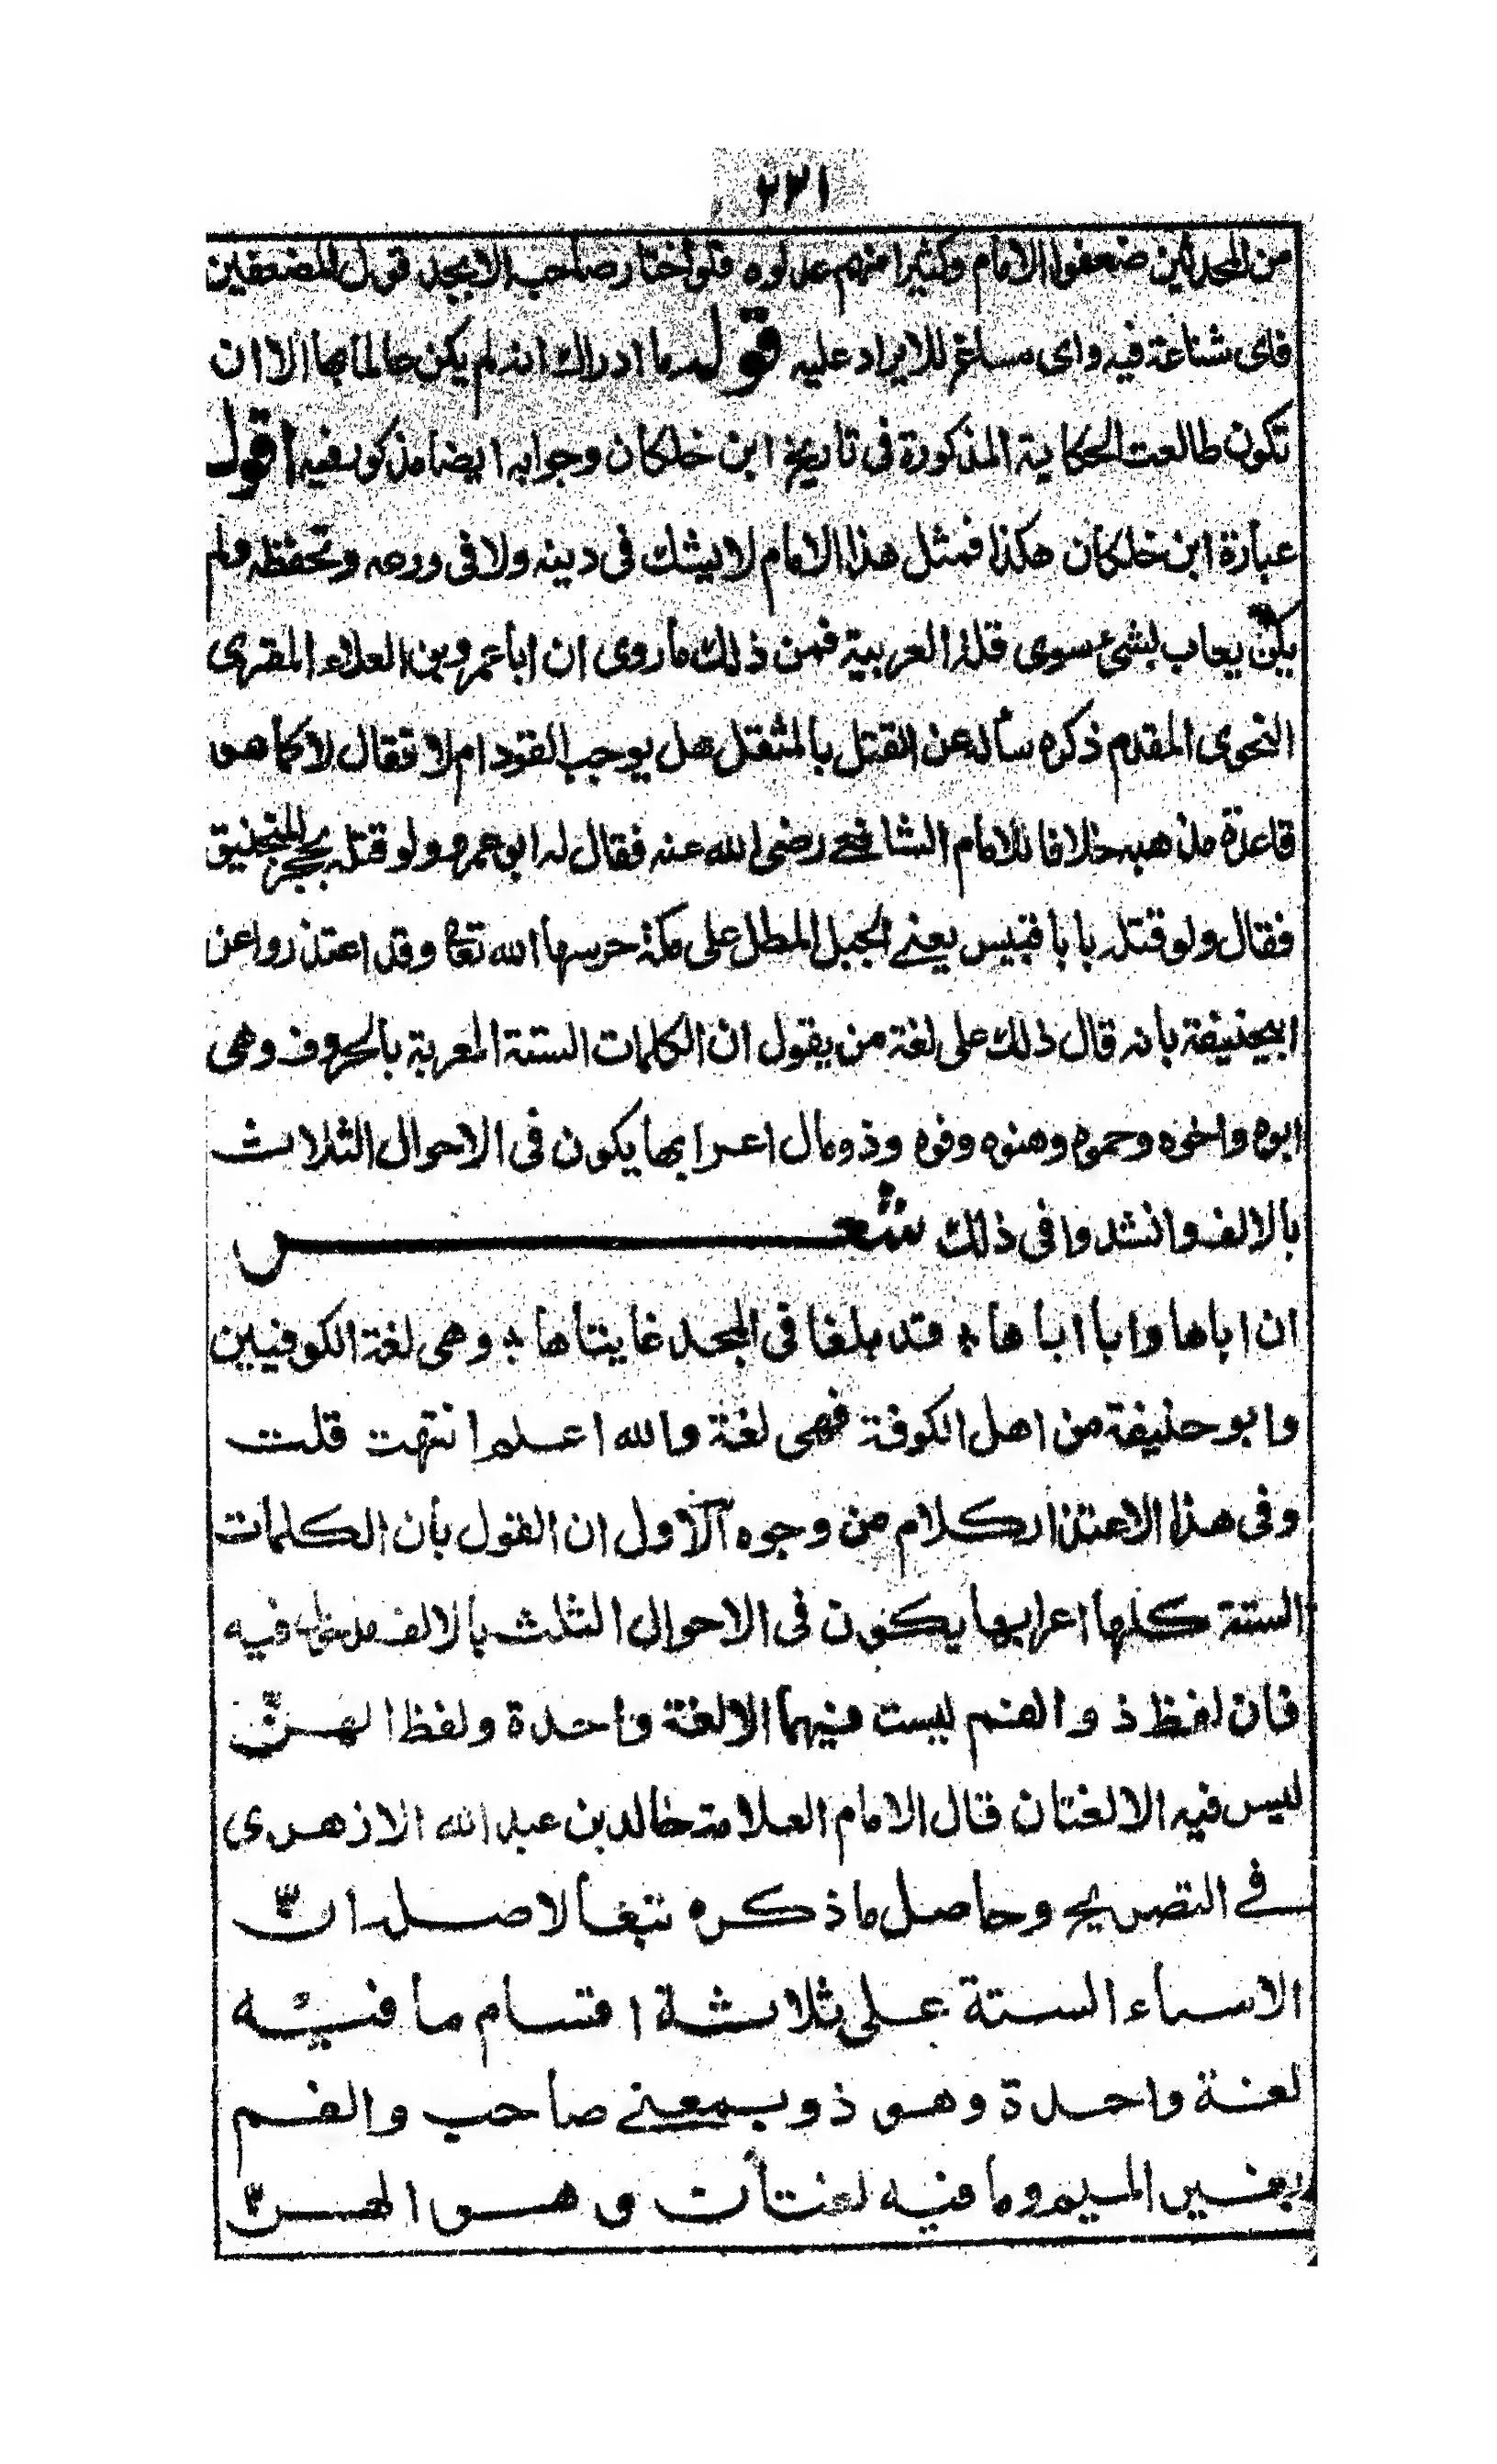 ٢٢١
من المحدثين ضعفوا الامام وكثيرا منهم عدلوه فلو اختار صاحب الابجد قول المضعفين
فاى شناعة فيه واى مساغ للايراد عليه قوله ما ادراك انه لم يكن عالما بها الا ان
تكون طالعت الحكاية المذكورة فى تاريخ ابن خلكان وجوابه ايضا مذكور فيه اقول
عبارة ابن خلكان هكذا فمثل هذا الامام لا يشك فى دينه ولا فى ورعه وتحفظه ولم
يكن يعاب بشئ سوى قلة العربية فمن ذلك ما روى ان ابا عمرو بن العلاء المقرى
النحوى المقدم ذكره سأله عن القتل بالمثقل هل يوجب القود ام لا فقال لا كما هو
قاعدة مذهبه خلافا للامام الشافعى رضى الله عنه فقال له ابو عمرو ولو قتله بحجر المنجنيق
فقال ولو قتله بابا قبيس يعنے الجبل المطل على مكة حرسها الله تعا وقد اعتذروا عن
ابيحنيفة بانه قال ذلك على لغة من يقول ان الكلمات الستة المعربة بالحروف وهى
ابوه واخوه وحموه وهنوه وفوه وذو مال اعرابها يكون فى الاحوال الثلاث
بالالف وانشدوا فى ذلك شعـــر
ان اباها وابا اباها ؛ قد بلغا فى المجد غايتاها ؛ وهى لغة الكوفيين
وابو حنيفة من اهل الكوفة فهى لغة والله اعلم انتهت قلت
وفى هذا الاعتذار كلام من وجوه الاول ان القول بأن الكلمات
الستة كلها اعرابها يكون فى الاحوال الثلث بالالف مدخول فيه
فان لفظ ذو والفم ليست فيهما الا لغة واحدة ولفظ الهن
ليس فيه الا لغتان قال الامام العلامة خالد بن عبد الله الازهرى
فے التصريح وحاصل ما ذكره تبعا لاصله ان
الاسماء الستة على ثلاثة اقسام ما فيه
لغة واحدة وهو ذو بمعنے صاحب والفم
بغير الميم وما فيه لغتان و هو الهن